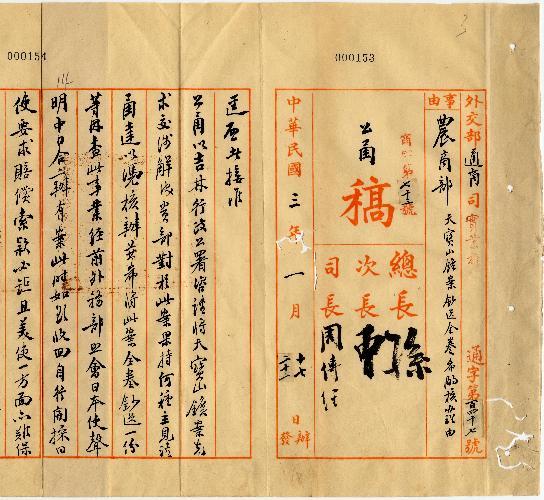 000153
外交部通商司實業科
通字第百四十七號
事由
農商部 天寶山礦案鈔送全卷希酌核办理由
商字第七十三號
公函
稿
總長 孫
次長 曹
司長 周傳經
中華民國三年一月
十七日辦
二十一發
000154
逕啟者接准
公函以吉林行政公署咨請將天寶山鑛案
求交涉解決貴部對於此案果持何種主見請
函達以憑核辦並希將此案全卷鈔送一份
等因查此事業經前外務部照會日本使聲
明中日合辦有案此時如欲收回自行開採日
使要求賠償索款必鉅且美使一方面亦難保